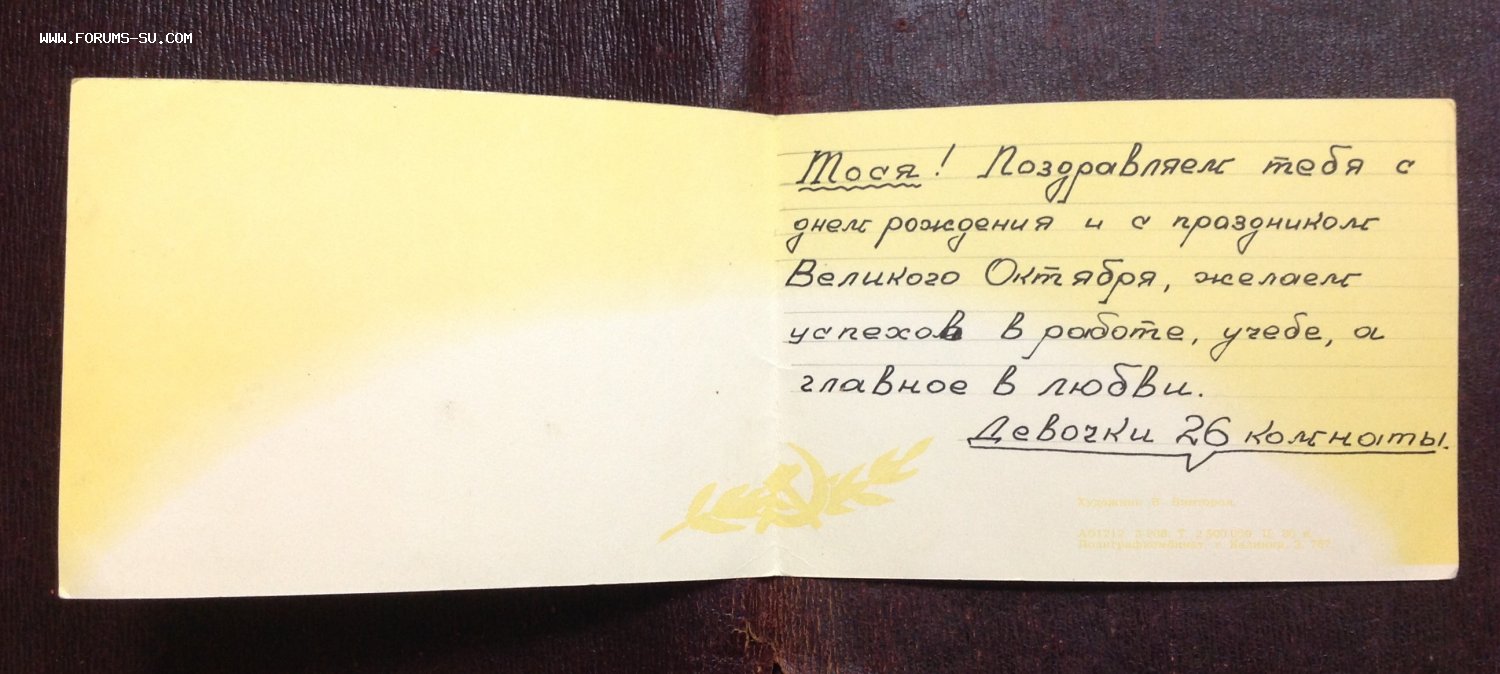 WWW.FORUMS-SU.COM
Тося! Поздравляем тебя с
днем рождения и с праздником
Великого Октября, желаем
успехов в работе, учебе, а
главное в любви.
Девочки 26 комнаты.
Художник В. Викторов
Полиграфкомбинат, г. Калинин, З. 787